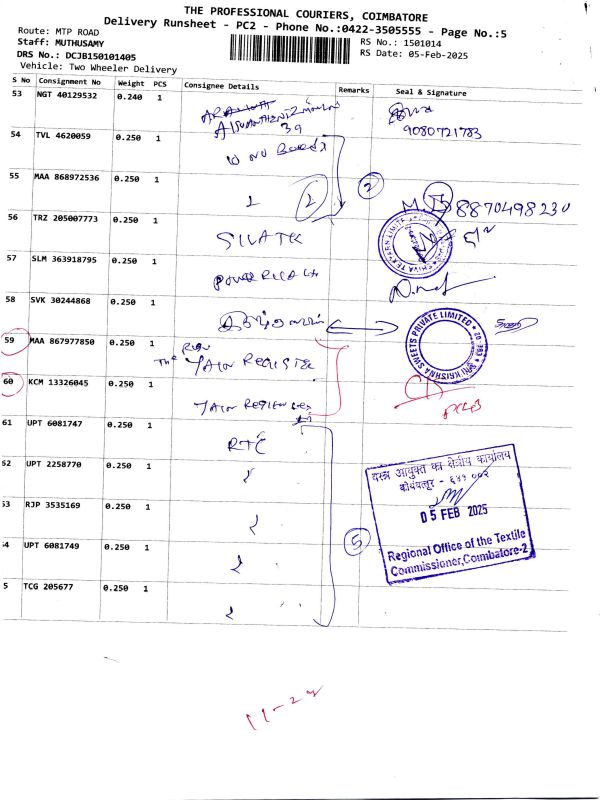 THE PROFESSIONAL COURIERS, COIMBATORE
Delivery Runsheet - PC2 - Phone No.:0422-3505555 - Page No.:5
Route: MTP ROAD
Staff: MUTHUSAMY
DRS No.: DCJB150101405
Vehicle: Two Wheeler Delivery
RS No.: 1501014
RS Date: 05-Feb-2025
S No Consignment No Weight PCS Consignee Details Remarks Seal & Signature
53 NGT 40129532 0.240 1
39
9080721783
54 TVL 4620059 0.250 1
55 MAA 868972536 0.250 1 2 2
8870498230
56 TRZ 205007773 0.250 1
57 SLM 363918795 0.250 1
58 SVK 30244868 0.250 1
SRI KRISHNA SWEETS PRIVATE LIMITED
59 MAA 867977850 0.250 1 REGISTER
60 KCM 13326045 0.250 1
61 UPT 6081747 0.250 1 RTC
62 UPT 2258770 0.250 1
वस्त्र आयुक्त का क्षेत्रीय कार्यालय
कोयंबत्तूर - ६४१ ००२
53 RJP 3535169 0.250 1
05 FEB 2025
54 UPT 6081749 0.250 1 5
Regional Office of the Textile
Commissioner, Coimbatore-2
5 TCG 205677 0.250 1
11-24